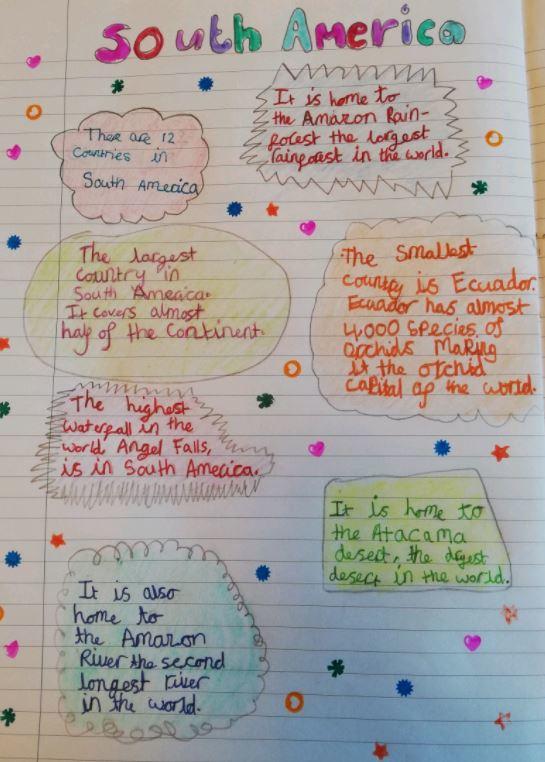 South America
There are 12
Countries in
South America
It is home to
the Amazon Rain-
forest the largest
rainforest in the world.
The largest
Country in
South America.
It covers almost
half of the Continent.
The Smallest
Country is Ecuador.
Ecuador has almost
4,000 Species of
Orchids Making
it the orchid
Capital of the world.
The highest
Waterfall in the
world, Angel Falls,
is in South America.
It is home to
the Atacama
desert, the dryest
desert in the world.
It is also
home to
the Amazon
River the second
longest river
in the world.